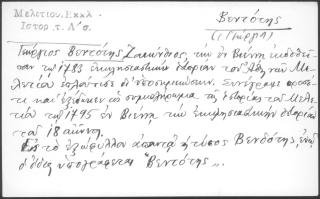 Μελετίου. Εκκλ.
Ιστορ. τ. Α΄ σ.
Βεντότης
(Γεώργ)
Γεώργιος Βεντότης Ζακύνθιος, τὴν ἐν Βιέννῃ ἐκδοθεῖ-
σαν τῷ 1783 ἐκκλησιαστικὴν ἱστορίαν τοῦ Ἀθηνῶν Με-
λετίου ἐπλούτισε δι' ὑποσημειώσεων. Συνέγραψε
τε καὶ ἐξέδωκεν τὸ συμπλήρωμα τῆς ἱστορίας τοῦ Μελε-
τίου τῷ 1795 ἐν Βιέννῃ, τὴν ἐκκλησιαστικὴν ἱστορίαν
τοῦ 18 αἰῶνος.
Εἰς τὸ ἐξώφυλλον ἀπαντᾷ ὁ τύπος Βενδότης, ἐνῷ
ὁ ἴδιος ὑπογράφεται "Βεντότης".